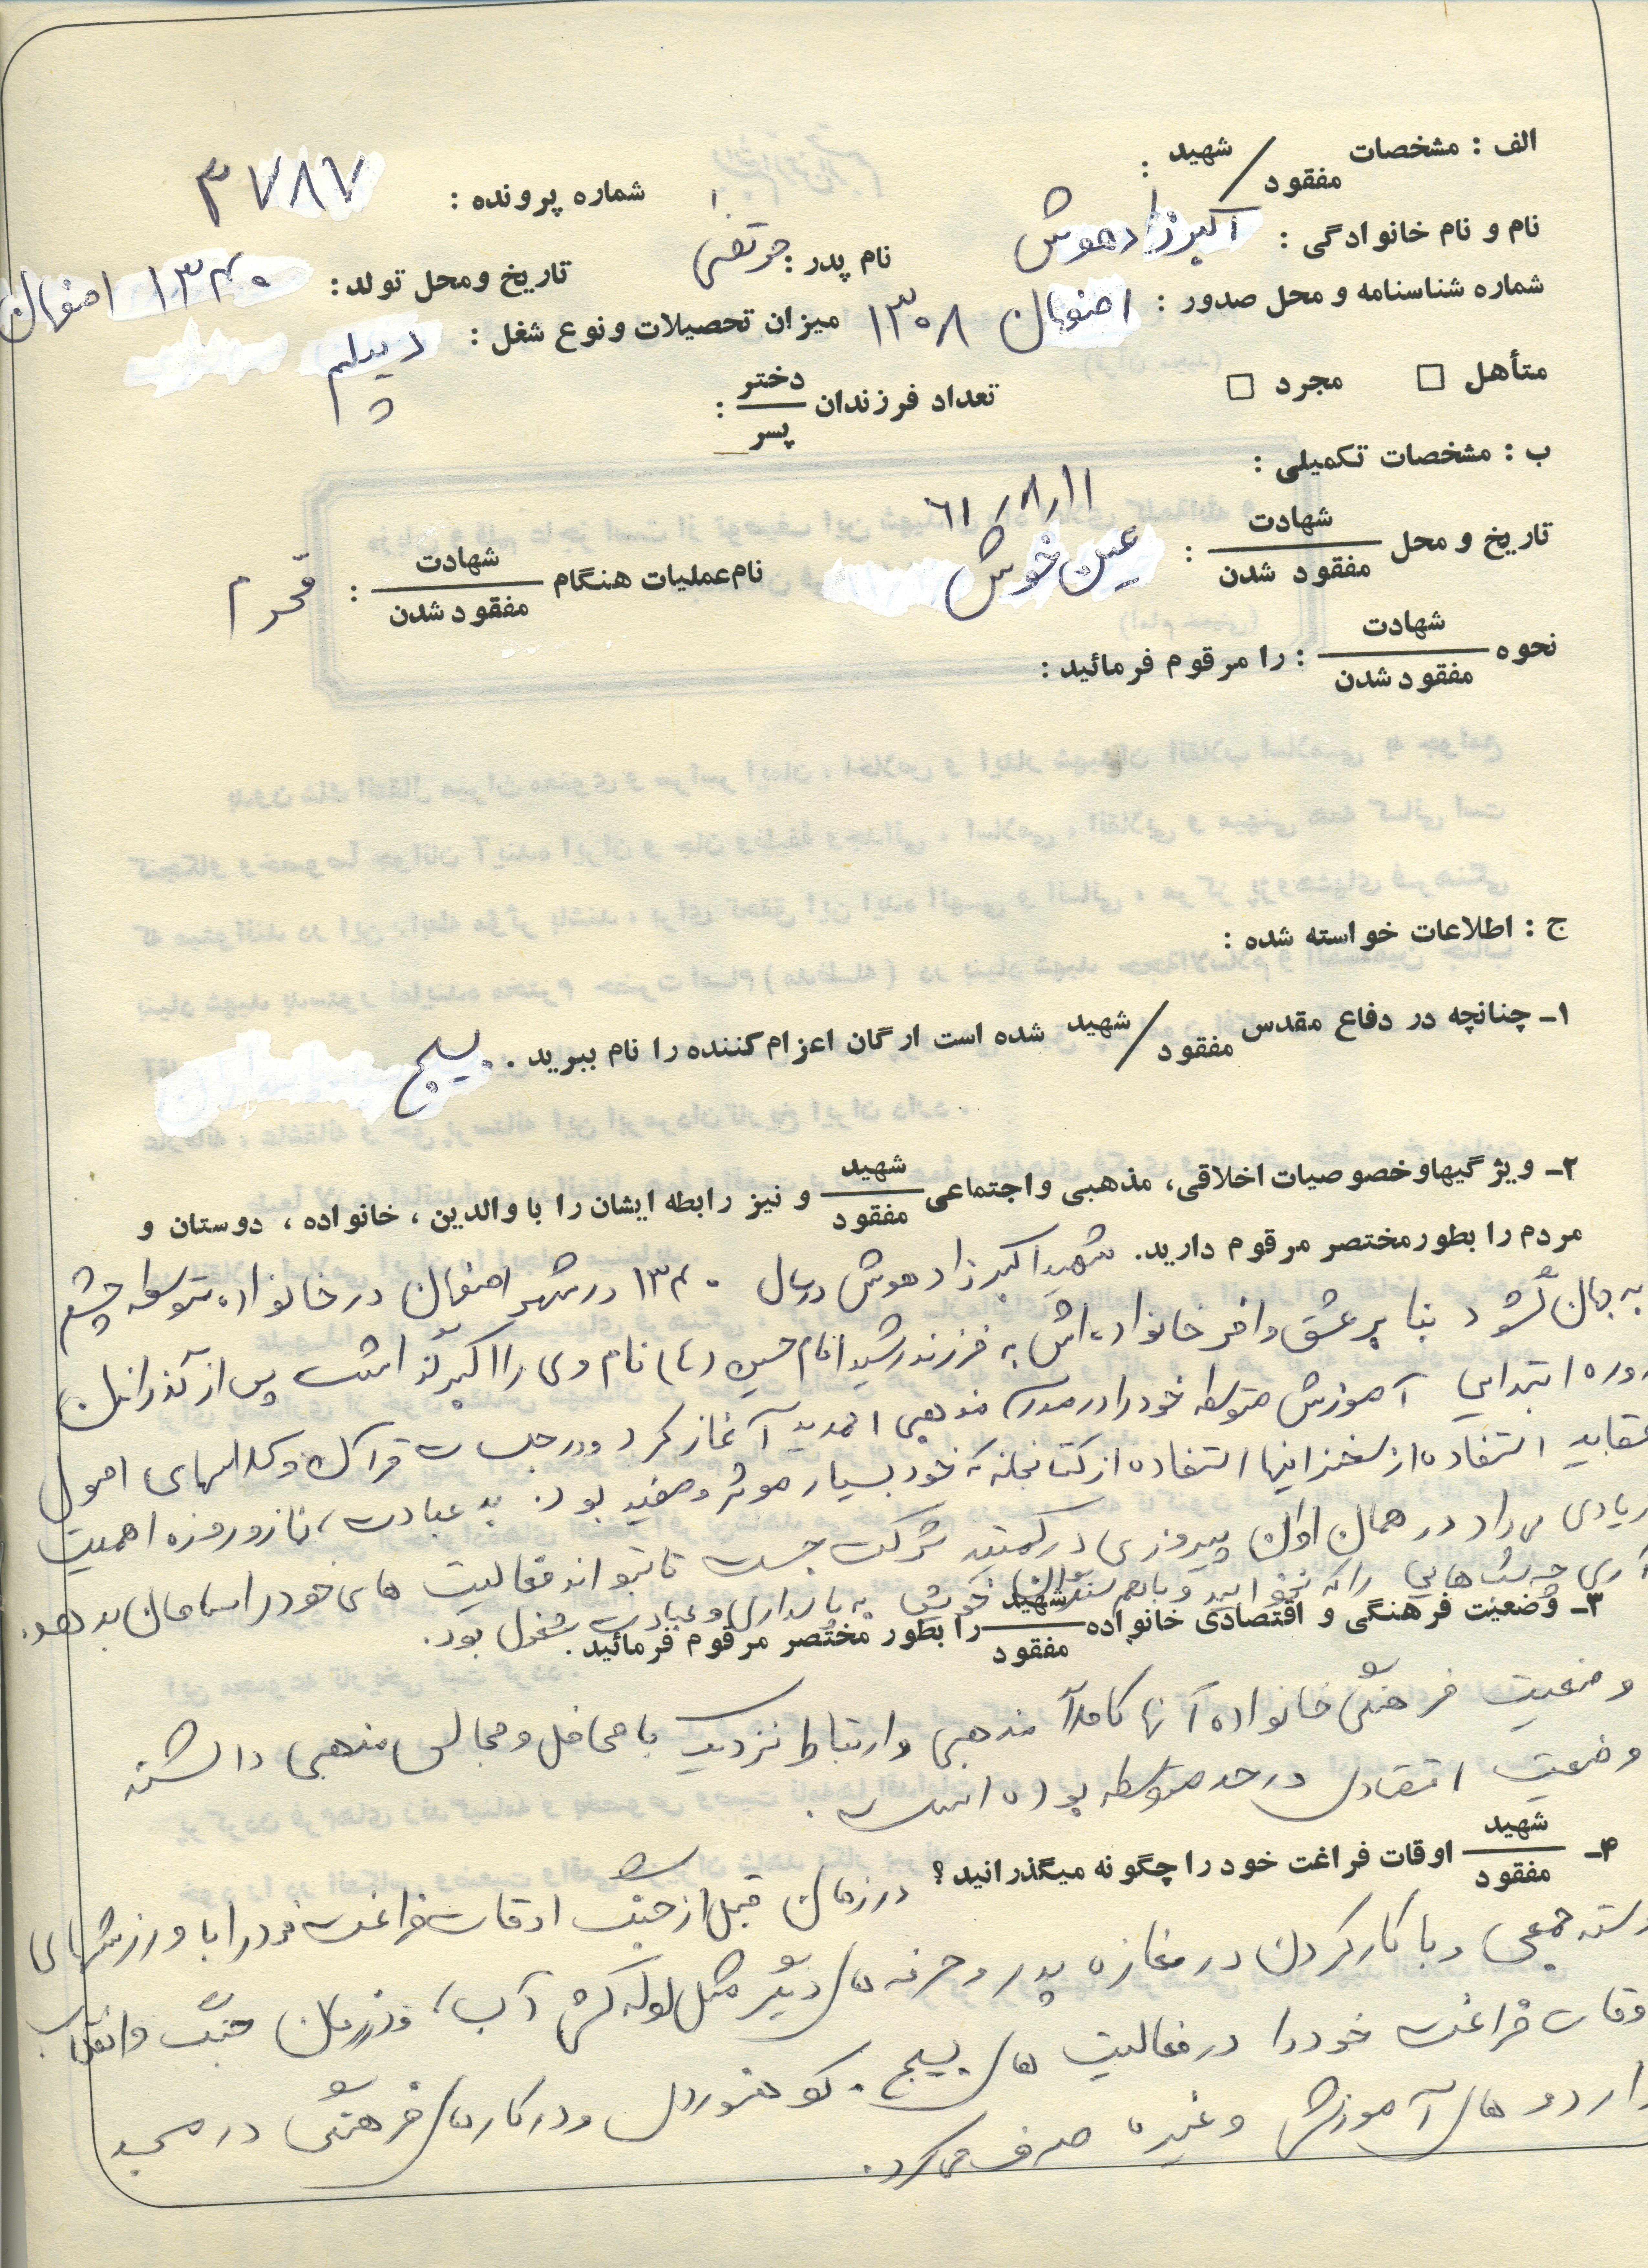 الف : مشخصات شهید / مفقود :
شماره پرونده : ۳۷۸۷
نام و نام خانوادگی : اکبر زادهوش
نام پدر : مرتضی
تاریخ و محل تولد : ۱۳۴۰ اصفهان
شماره شناسنامه و محل صدور : اصفهان ۱۳۰۸
میزان تحصیلات و نوع شغل : دیپلم
متأهل □ مجرد □
تعداد فرزندان دختر / پسر :
ب : مشخصات تکمیلی :
تاریخ و محل شهادت / مفقود شدن : ۶۱/۸/۱۱ عین خوش
نام عملیات هنگام شهادت / مفقود شدن : محرم
نحوه شهادت / مفقود شدن : را مرقوم فرمائید :
ج : اطلاعات خواسته شده :
۱ـ چنانچه در دفاع مقدس شهید / مفقود شده است ارگان اعزام کننده را نام ببرید . بسیج
۲ـ ویژگیها و خصوصیات اخلاقی، مذهبی و اجتماعی شهید / مفقود و نیز رابطه ایشان را با والدین ، خانواده ، دوستان و
مردم را بطور مختصر مرقوم دارید. شهید اکبر زادهوش در سال ۱۳۴۰ در شهر اصفهان در خانواده متوسط چشم
به جهان گشود بنا بر عشق وافر خانواده اش به فرزند رشید امام حسین (ع) نام وی را اکبر گذاشت پس از گذراندن
دوره ابتدایی آموزش متوسطه خود را در مدرسه مذهبی احمدیه آغاز کرد و در جلسات قرآن و کلاسهای اصول
عقاید استفاده از سخنرانیها استفاده از کتابخانه که خود بسیار موثر و مفید بود. به عبادت، نماز و روزه اهمیت
زیادی می داد در همان اوان پیروزی در کمیته شرکت جست تا بتواند فعالیت های خود را سامان بدهد.
آری چه شب هایی را که نخوابید و با هم سنگران خویش به پاسداری و عبادت مشغول بود.
۳ـ وضعیت فرهنگی و اقتصادی خانواده شهید / مفقود را بطور مختصر مرقوم فرمائید .
وضعیت فرهنگی خانواده آنها کاملاً مذهبی و ارتباط نزدیک با محافل و مجالس مذهبی داشته
وضعیت اقتصادی در حد متوسط بوده است .
۴ـ شهید / مفقود اوقات فراغت خود را چگونه میگذرانید؟ در زمان قبل از جنگ اوقات فراغت خود را با ورزشهای
دسته جمعی و با کار کردن در مغازه پدر و حرفه های دیگر مثل لوله کشی آب، و در زمان جنگ و انقلاب
اوقات فراغت خود را در فعالیت های بسیج . کوهنوردی و در کارهای فرهنگی در مسجد
و اردوهای آموزشی و غیره صرف می کرد.